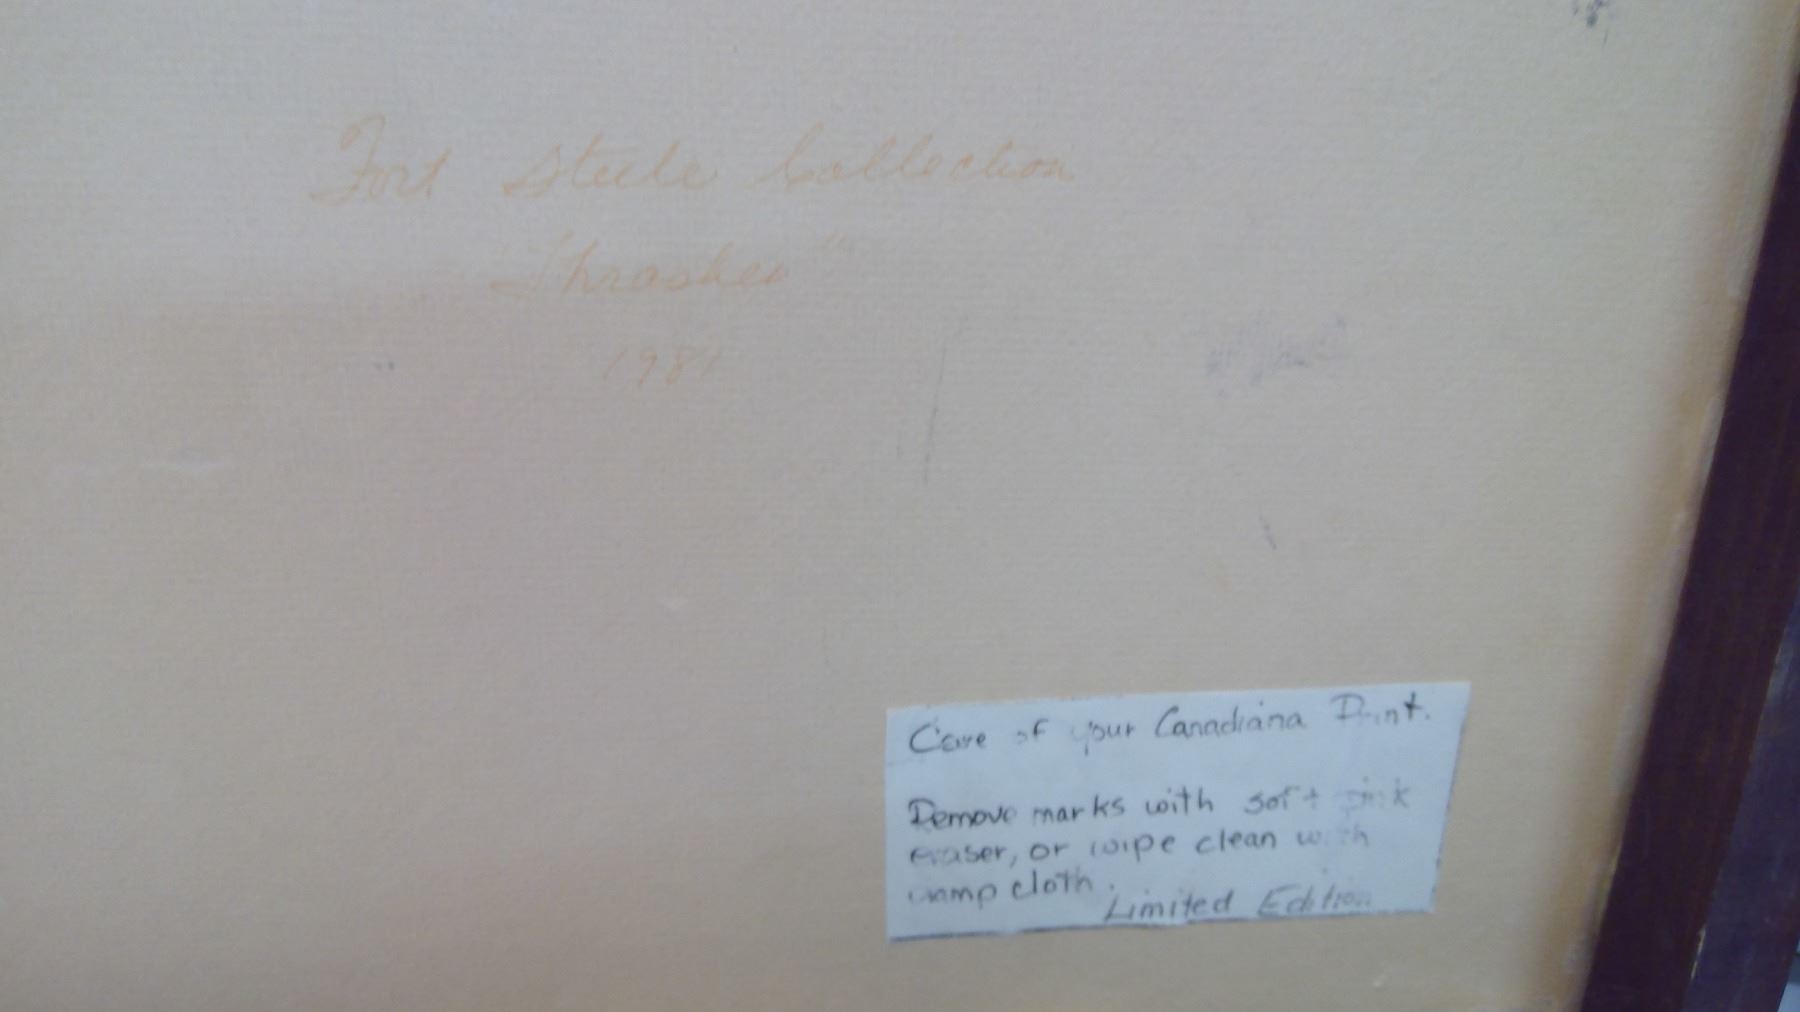 Fort Steele Collection
"Thrasher"
1981
Care of your Canadiana Print.
Remove marks with soft pink
eraser, or wipe clean with
damp cloth.
Limited Edition